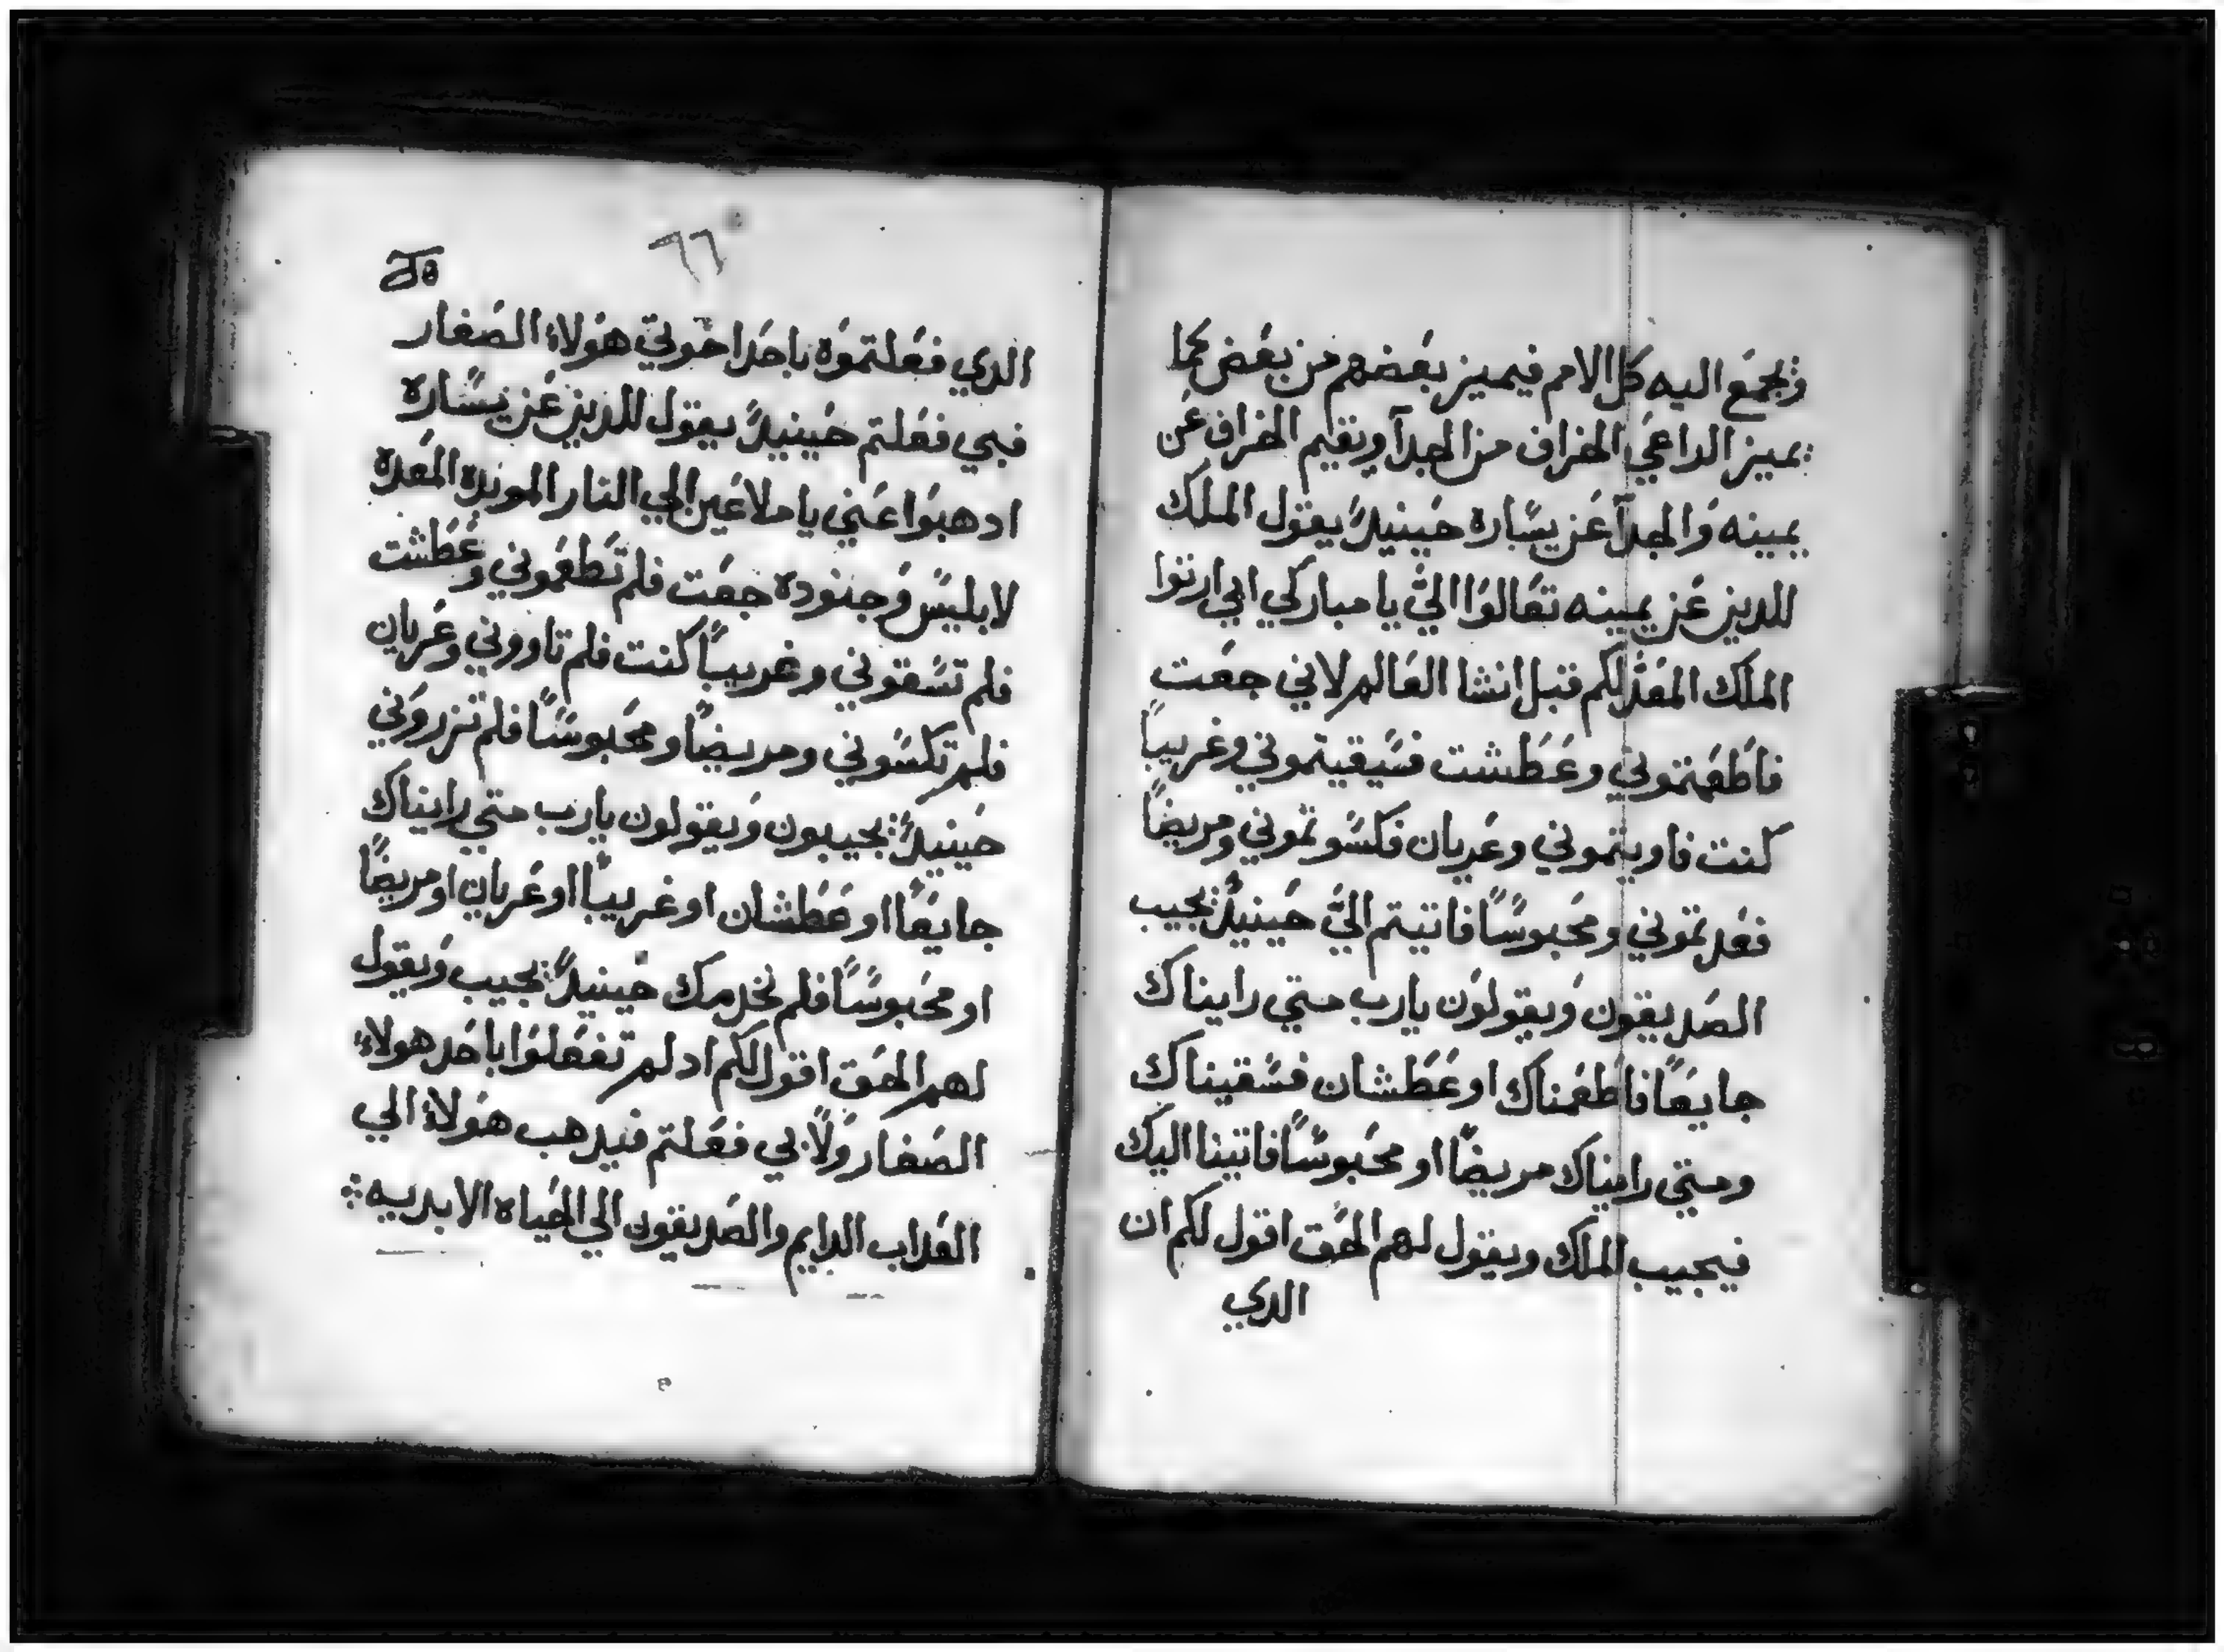 ويجمع اليه كل الامم فيميز بعضهم من بعض كما
يميز الراعي الخراف من الجدآ ويقيم الخراف عن
يمينه والجدآ عن يساره حينيدً يقول الملك
للدين عن يمينه تعالوا اليَّ يا مباركي ابي ارثوا
الملك المعد لكم قبل انشا العالم لاني جعت
فاطعمتموني وعطشت فسقيتموني وغريباً
كنت فاويتموني وعريان فكسوتموني ومريضاً
فعدتموني ومحبوساً فاتيتم اليَّ حينيدً يجيب
الصديقون ويقولون يارب متي رايناك
جايعاً فاطعمناك او عطشان فسقيناك
ومتي رايناك مريضاً او محبوساً فاتينا اليك
فيجيب الملك ويقول لهم الحق اقول لكم ان
الدي
٦٦
الدي فعلتموه باحد اخوتي هولاء الصغار
فبي فعلتم حينيدً يقول للدين عن يساره
ادهبوا عني يا ملاعين الي النار الموبده المعده
لابليس وجنوده جعت فلم تطعموني وعطشت
فلم تسقوني وغريباً كنت فلم تاووني وعريان
فلم تكسوني ومريضاً ومحبوساً فلم تزروني
حينيدً يجيبون ويقولون يارب متي رايناك
جايعاً او عطشان او غريباً او عريان او مريضاً
او محبوساً فلم نخدمك حينيدً يجيب ويقول
لهم الحق اقول لكم اد لم تفعلوا باحد هولاء
الصغار ولا بي فعلتم فيدهب هولاء الي
العداب الدايم والصديقون الي الحياه الابديه